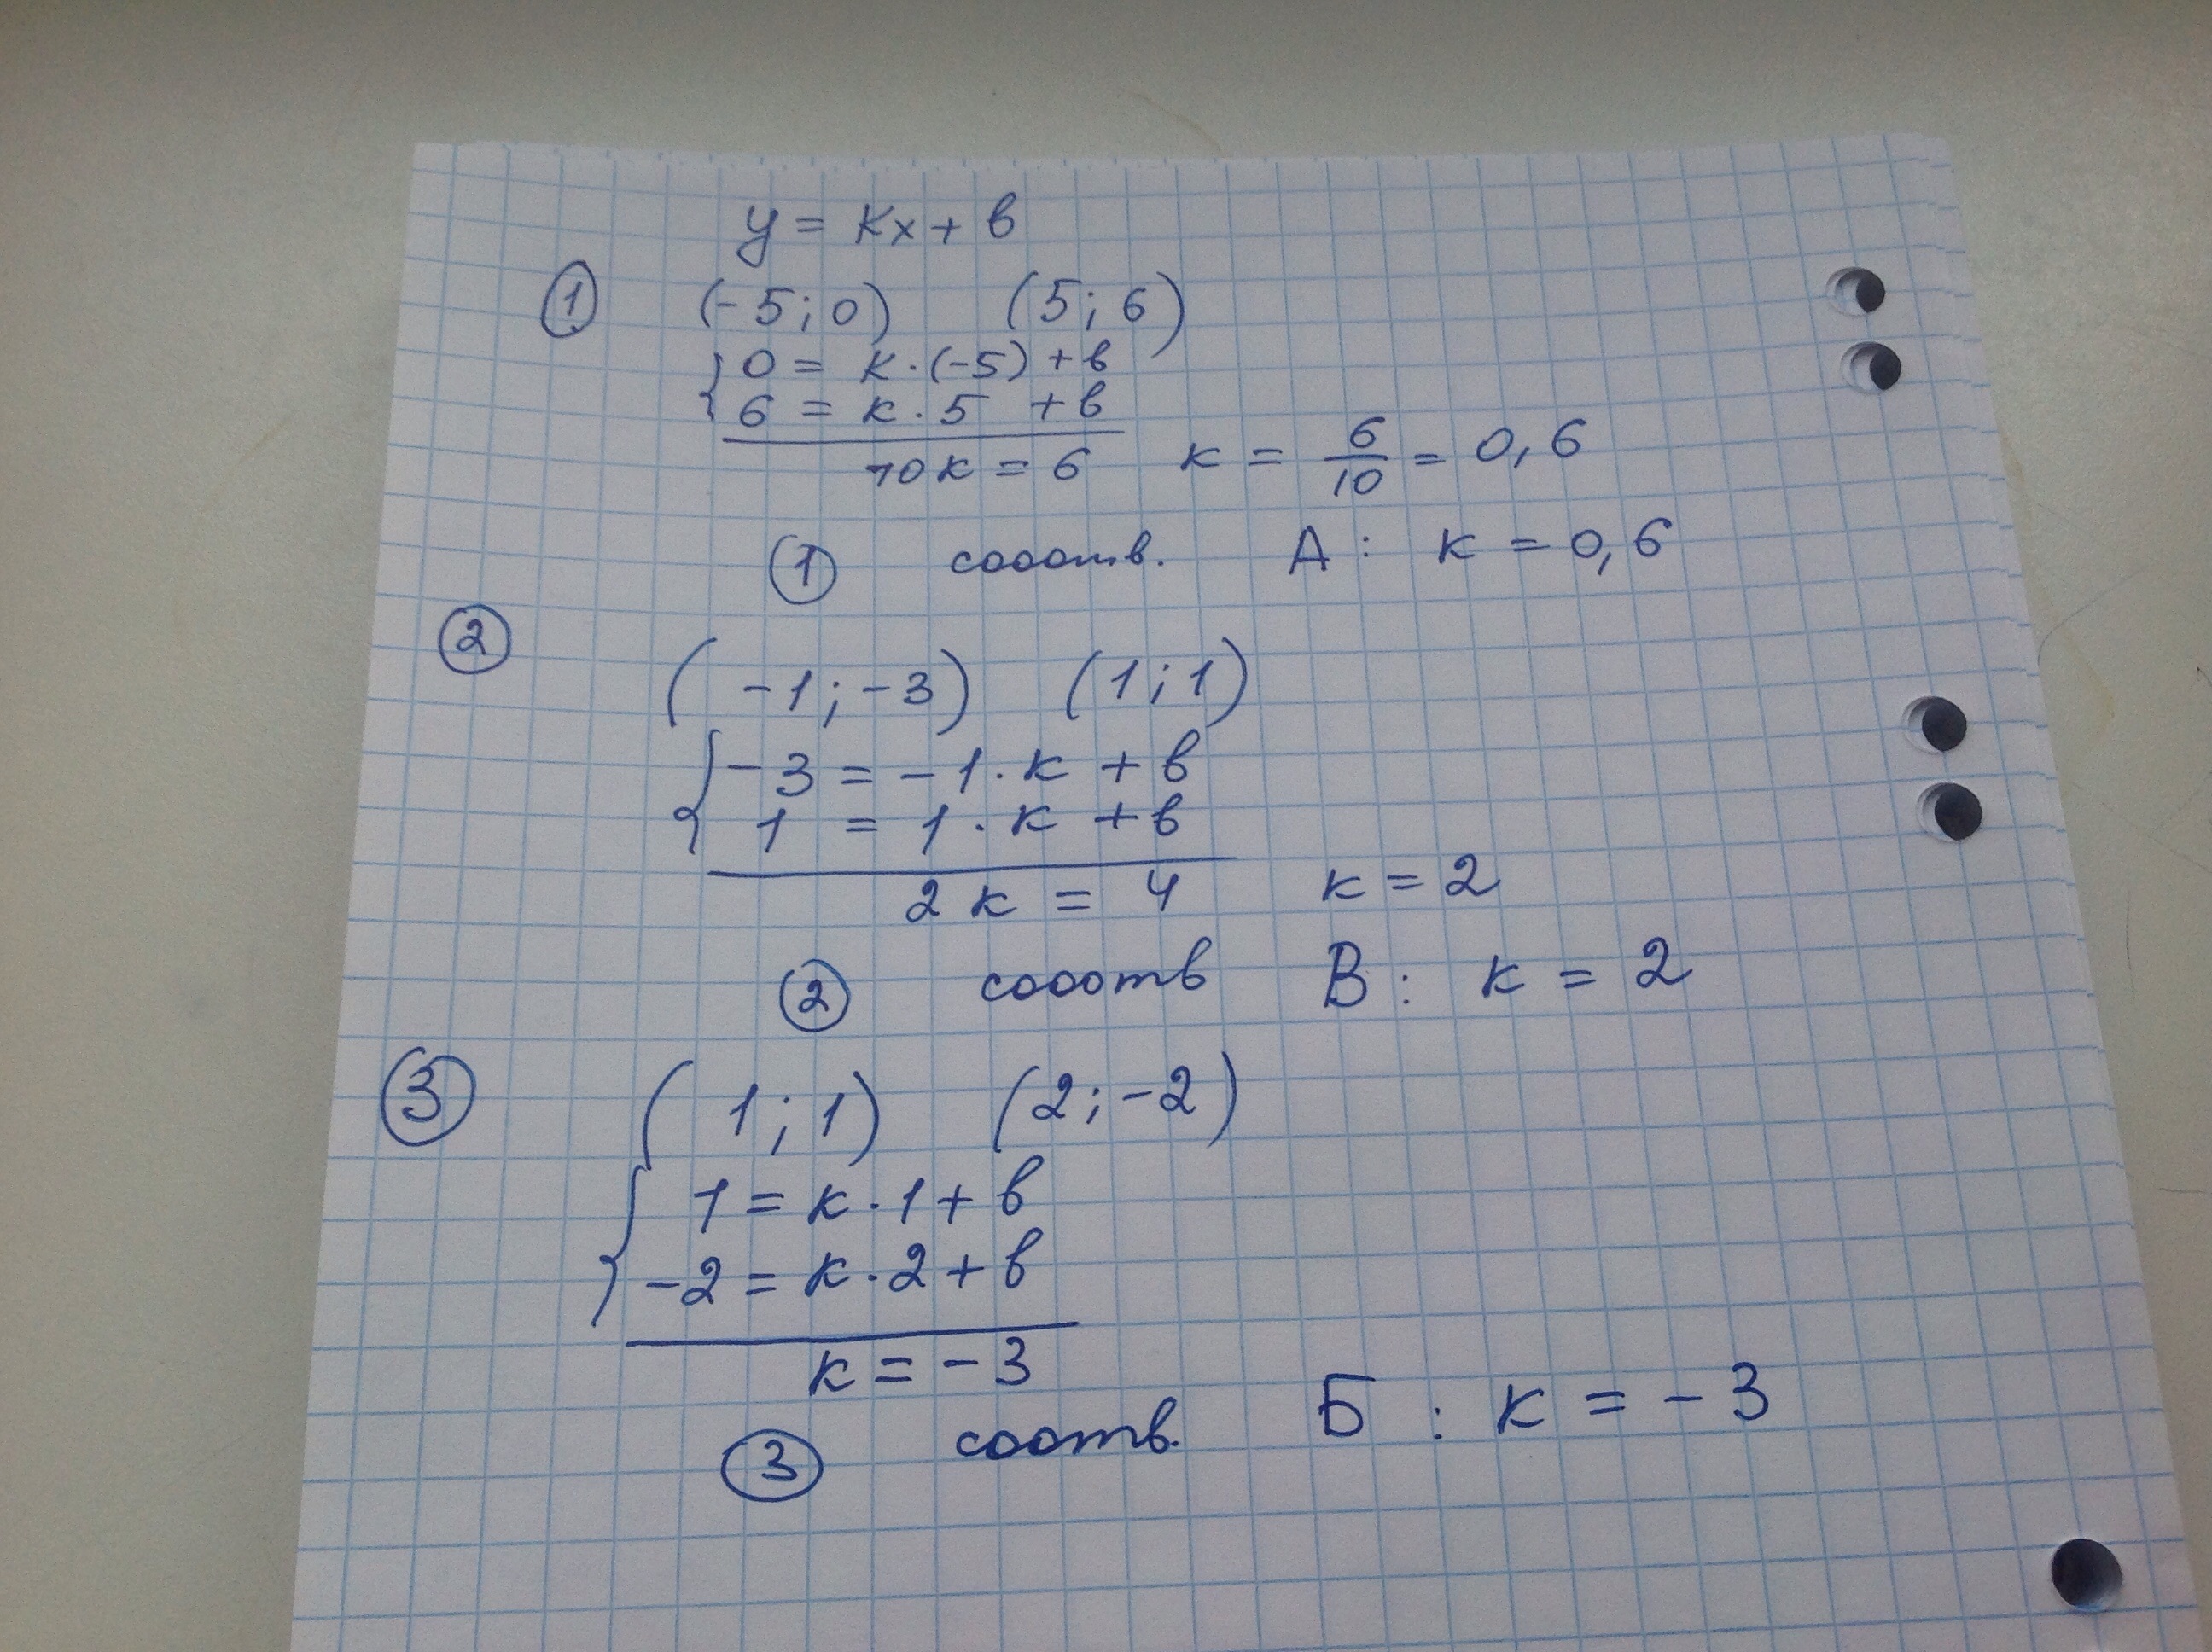 y = kx + b
① (-5; 0) (5; 6)
{ 0 = k · (-5) + b
6 = k · 5 + b
10k = 6 k = 6/10 = 0,6
① сооотв. А: k = 0,6
②
(-1; -3) (1; 1)
{ -3 = -1 · k + b
1 = 1 · k + b
2k = 4 k = 2
② сооотв В: k = 2
③ (1; 1) (2; -2)
{ 1 = k · 1 + b
-2 = k · 2 + b
k = -3
③ соотв. Б: k = -3